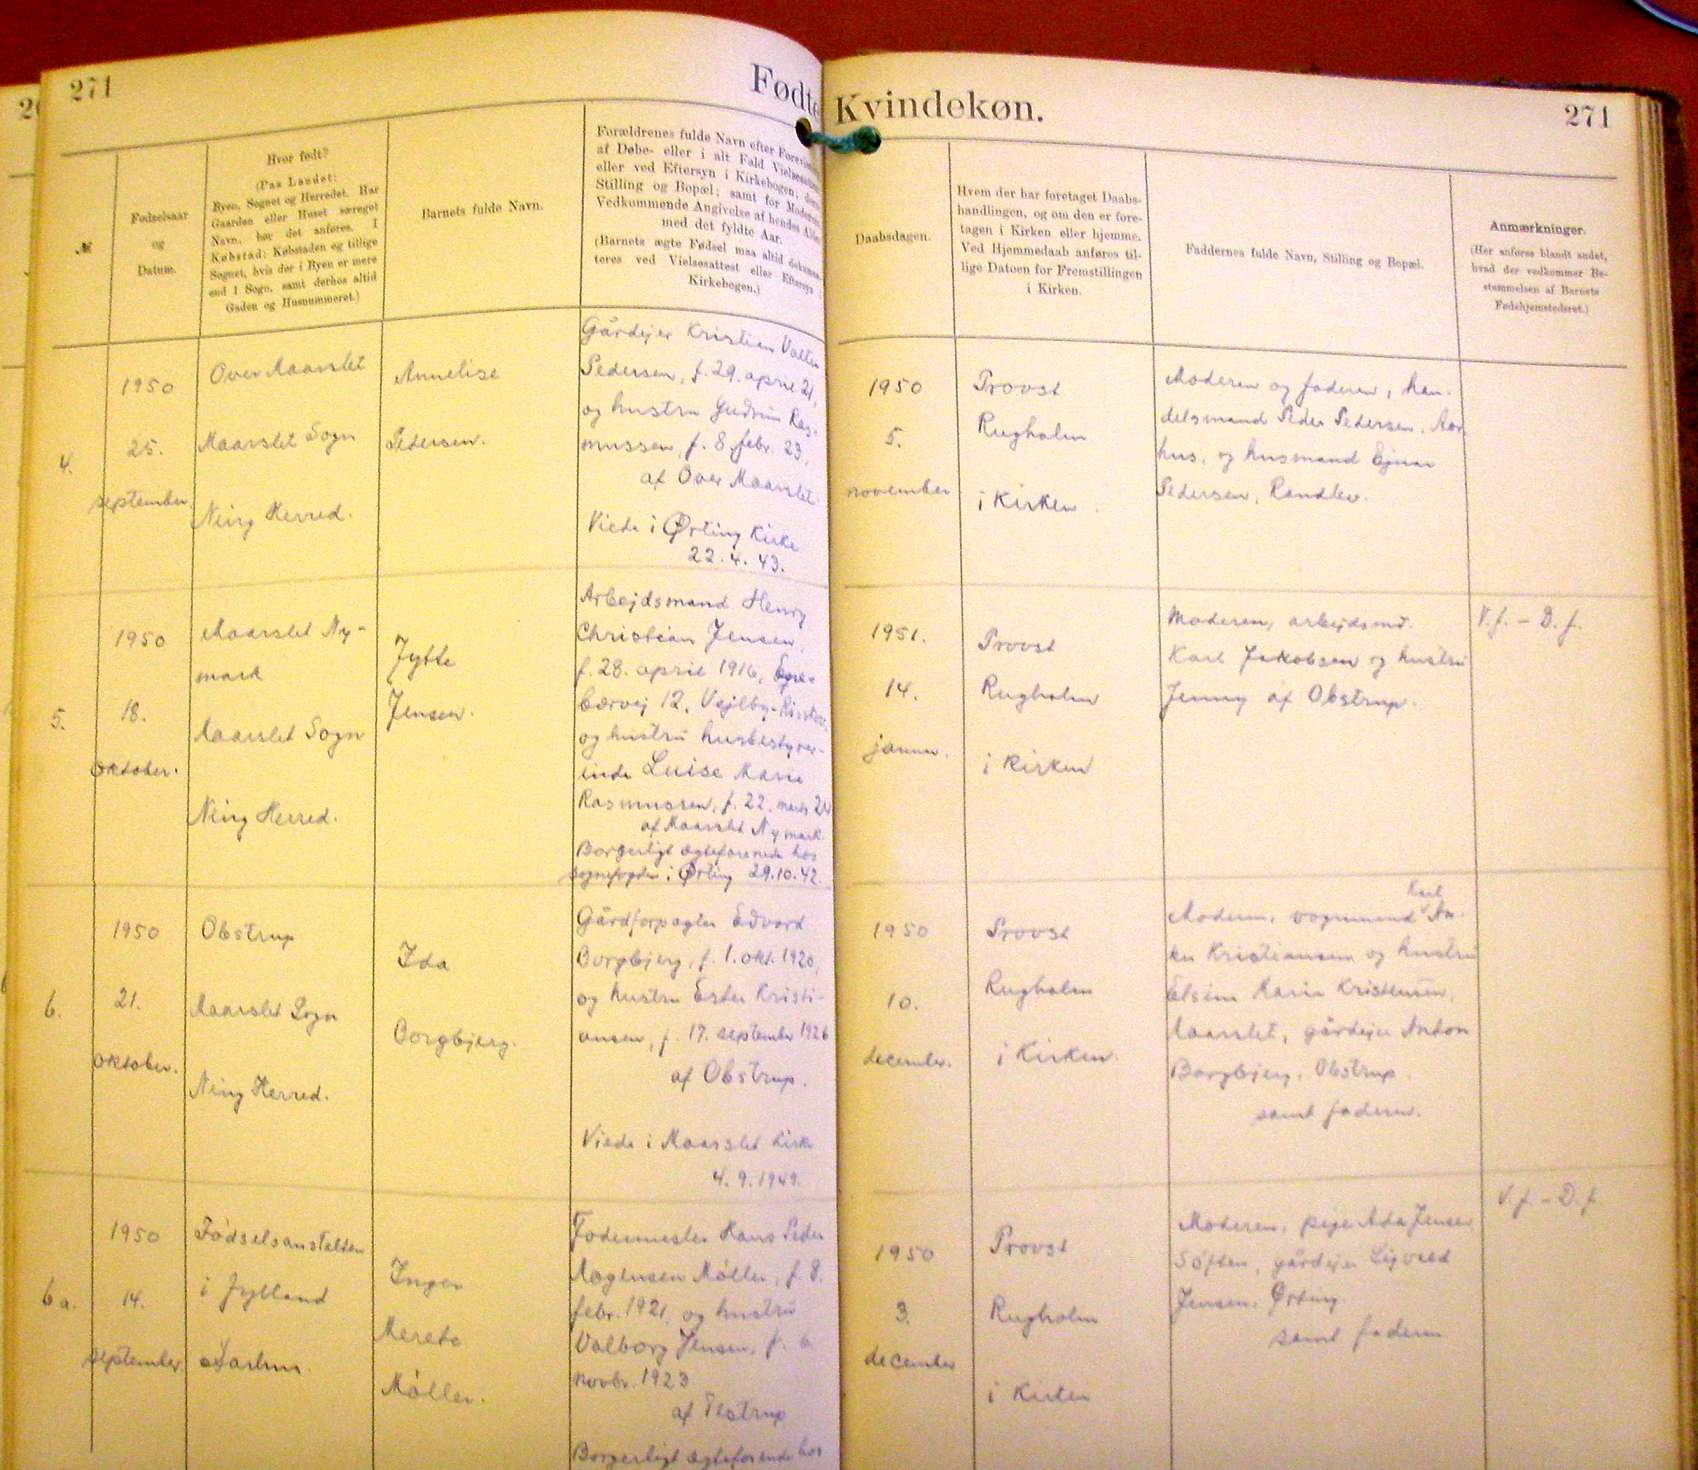 271
Fødte
№
Fødselsaar
og
Datum.
Hvor født?
(Paa Landet:
Byen, Sognet og Herredet. Har
Gaarden eller Huset særeget
Navn, bør det anføres. I
Købstad: Købstaden og tillige
Sognet, hvis der i Byen er mere
end 1 Sogn, samt derhos altid
Gaden og Husnummeret.)
Barnets fulde Navn.
Forældrenes fulde Navn efter
af Døbe- eller i alt Fald
eller ved Eftersyn i Kirkebogen;
Stilling og Bopæl; samt for
Vedkommende Angivelse af hendes
med det fyldte Aar.
(Barnets ægte Fødsel maa altid
teres ved Vielsesattest eller Eftersyn i
Kirkebogen.)
4.
1950
25.
september
Over Maarslet
Maarslet Sogn
Ning Herred.
Annelise
Pedersen.
Gårdejer Kristian
Pedersen, f. 29. april 21,
og hustru Gudrun Ras-
mussen, f. 8. febr. 23,
af Over Maarslet.
Viede i Ørting Kirke
22.4.43.
5.
1950
18.
oktober.
Maarslet Ny-
mark
Maarslet Sogn
Ning Herred.
Jytte
Jensen.
Arbejdsmand Henry
Christian Jensen,
f. 28. april 1916,
bærvej 12, Vejlby-
og hustru husbestyrer-
inde Luise Marie
Rasmussen, f. 22. marts
af Maarslet Nymark.
Borgerligt ægteforenede hos
sognefogden i Ørting 29.10.42.
6.
1950
21.
oktober.
Obstrup
Maarslet Sogn
Ning Herred.
Ida
Borgbjerg.
Gårdforpagter Edvard
Borgbjerg, f. 1. okt. 1920,
og hustru Ester Kristi-
ansen, f. 17. september 1926
af Obstrup.
Viede i Maarslet Kirke
4.9.1949.
6a.
1950
14.
september
Fødselsanstalten
i Jylland
Aarhus.
Inger
Merete
Møller.
Fodermester Hans Peder
Mogensen Møller, f. 8.
febr. 1921, og hustru
Valborg Jensen, f. 6.
novbr. 1923
af
Borgerligt ægteforenede hos
Kvindekøn.
271
Daabsdagen.
Hvem der har foretaget Daabs-
handlingen, og om den er fore-
tagen i Kirken eller hjemme.
Ved Hjemmedaab anføres til-
lige Datoen for Fremstillingen
i Kirken.
Faddernes fulde Navn, Stilling og Bopæl.
Anmærkninger.
(Her anføres blandt andet,
hvad der vedkommer Be-
stemmelsen af Barnets
Fødehjemstedsret.)
1950
5.
november
Provst
Rugholm
i Kirken.
Moderen og faderen, han-
delsmand Peder Pedersen, Aar-
hus, og husmand Ejnar
Pedersen, Randlev.
1951.
14.
januar.
Provst
Rugholm
i Kirken
Moderen, arbejdsmd.
Karl Jakobsen og hustru
Jenny af Obstrup.
V.f. – D.f.
1950
10.
december.
Provst
Rugholm
i Kirken.
Karl
Moderen, vognmand An-
ker Kristiansen og hustru
Elsine Marie Kristensen,
Maarslet, gårdejer Anton
Borgbjerg, Obstrup
samt faderen.
1950
3.
december
Provst
Rugholm
i Kirken
Moderen, pige Ada Jensen
Søften, gårdejer Sigvald
Jensen, Ørting
samt faderen
V.f. – D.f.